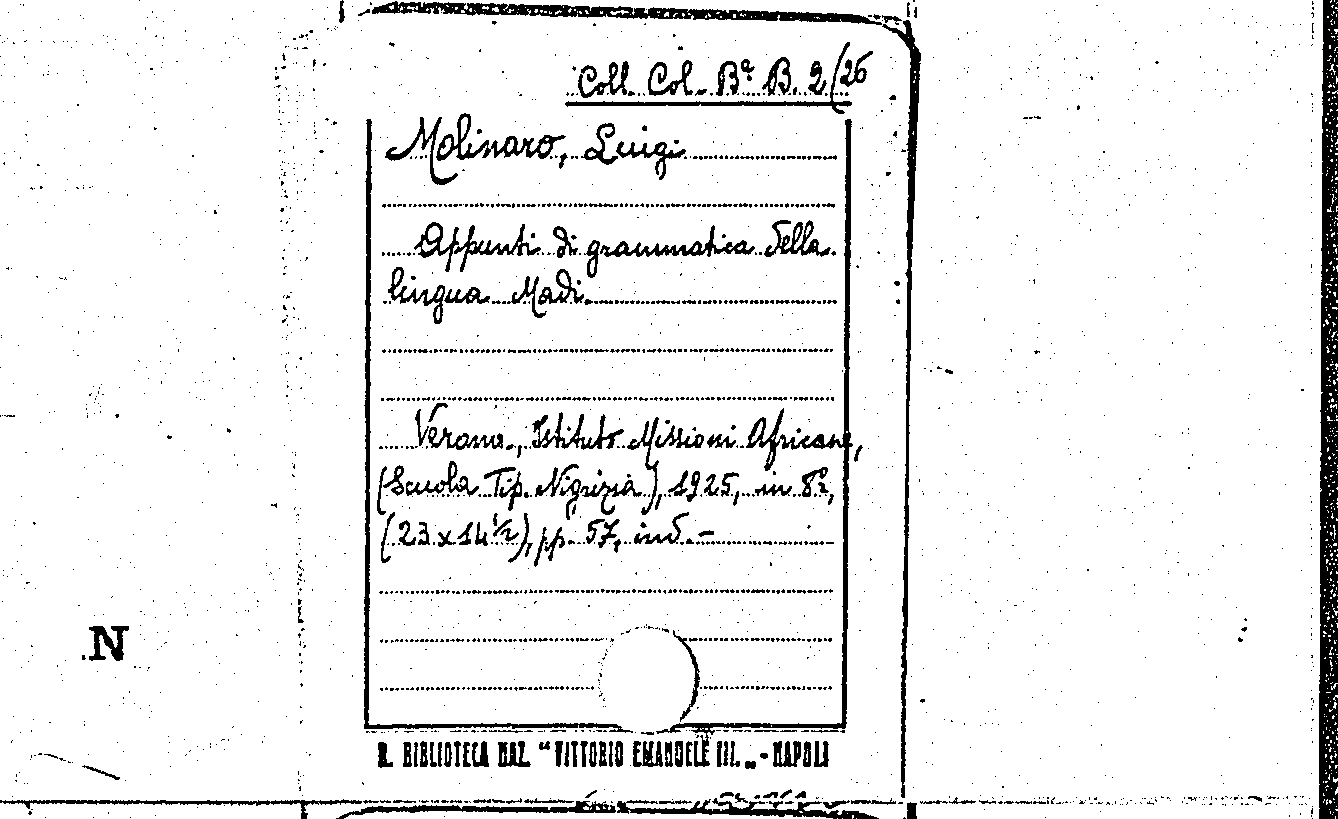 Coll. Col. Bª B. 2/26
Molinaro, Luigi
Appunti di grammatica della
lingua Madi.
Verona, Istituto Missioni Africane,
(Scuola Tip. Nigrizia), 1925, in 8º,
(23 x 14 1/2), pp. 57, ind. -
N
R. BIBLIOTECA NAZ. "VITTORIO EMANUELE III." - NAPOLI